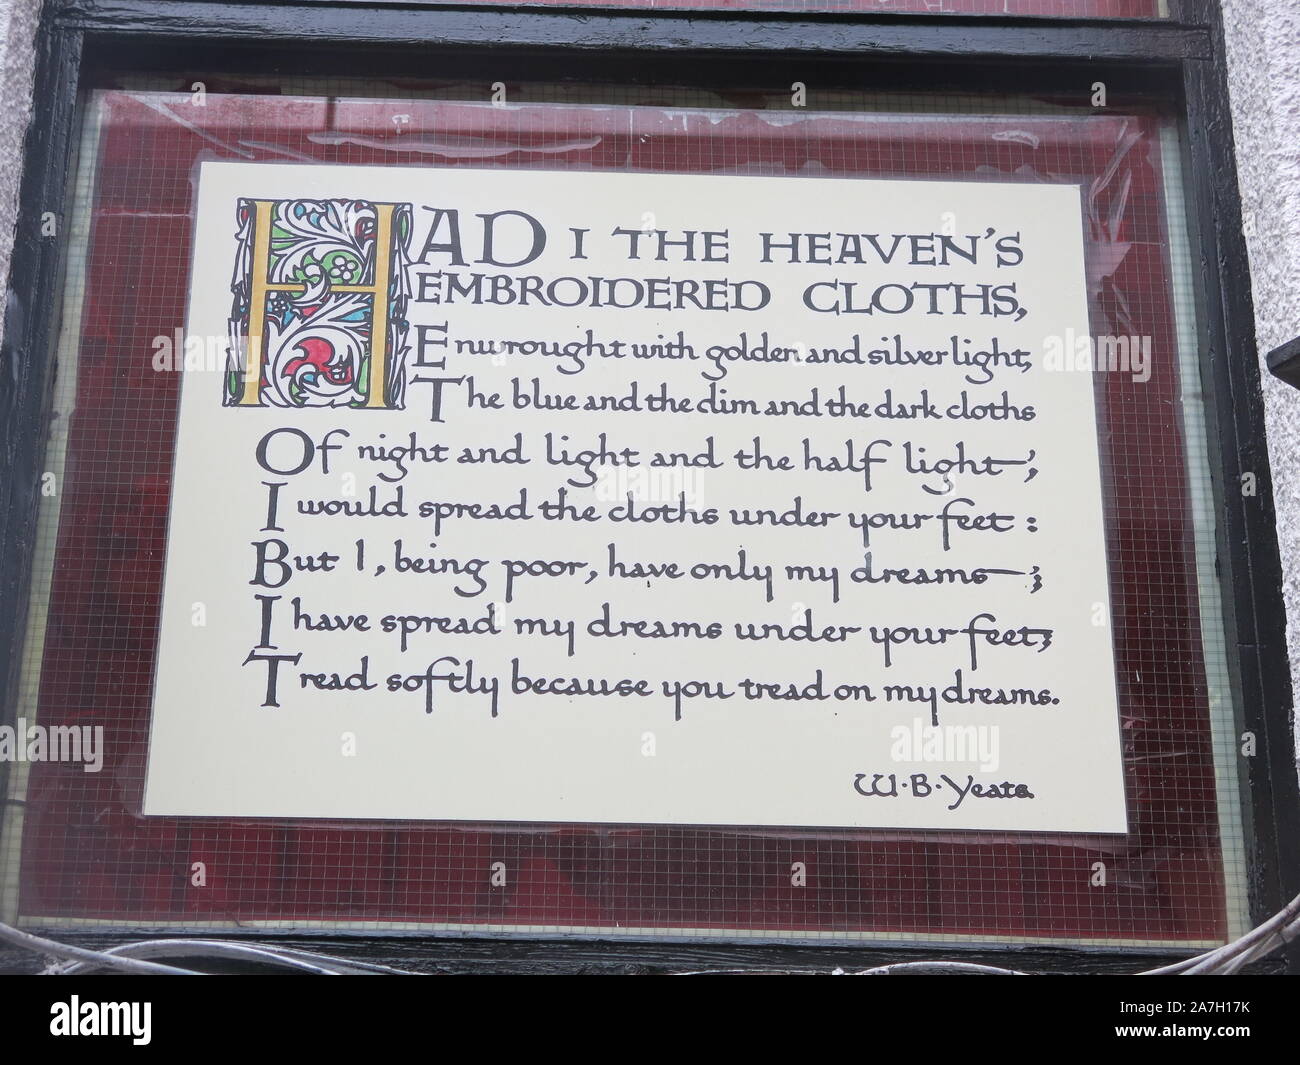 HAD I THE HEAVEN'S
EMBROIDERED CLOTHS,
Enwrought with golden and silver light,
The blue and the dim and the dark cloths
Of night and light and the half light;
I would spread the cloths under your feet:
But I, being poor, have only my dreams;
I have spread my dreams under your feet;
Tread softly because you tread on my dreams.
W·B·Yeats
a alamy
Image ID: 2A7H17K
www.alamy.com